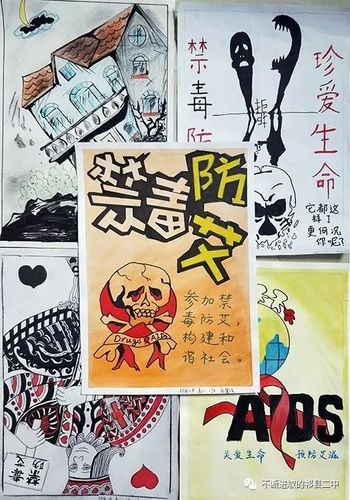 禁毒防
珍爱生命
拒
它都这
样了
更何况
你呢?
禁毒防艾
Drugs AIDS
参加禁
毒防艾，
构建和
谐社会。
禁毒防艾
AIDS
关爱生命 预防艾滋
不断进取的祁县二中